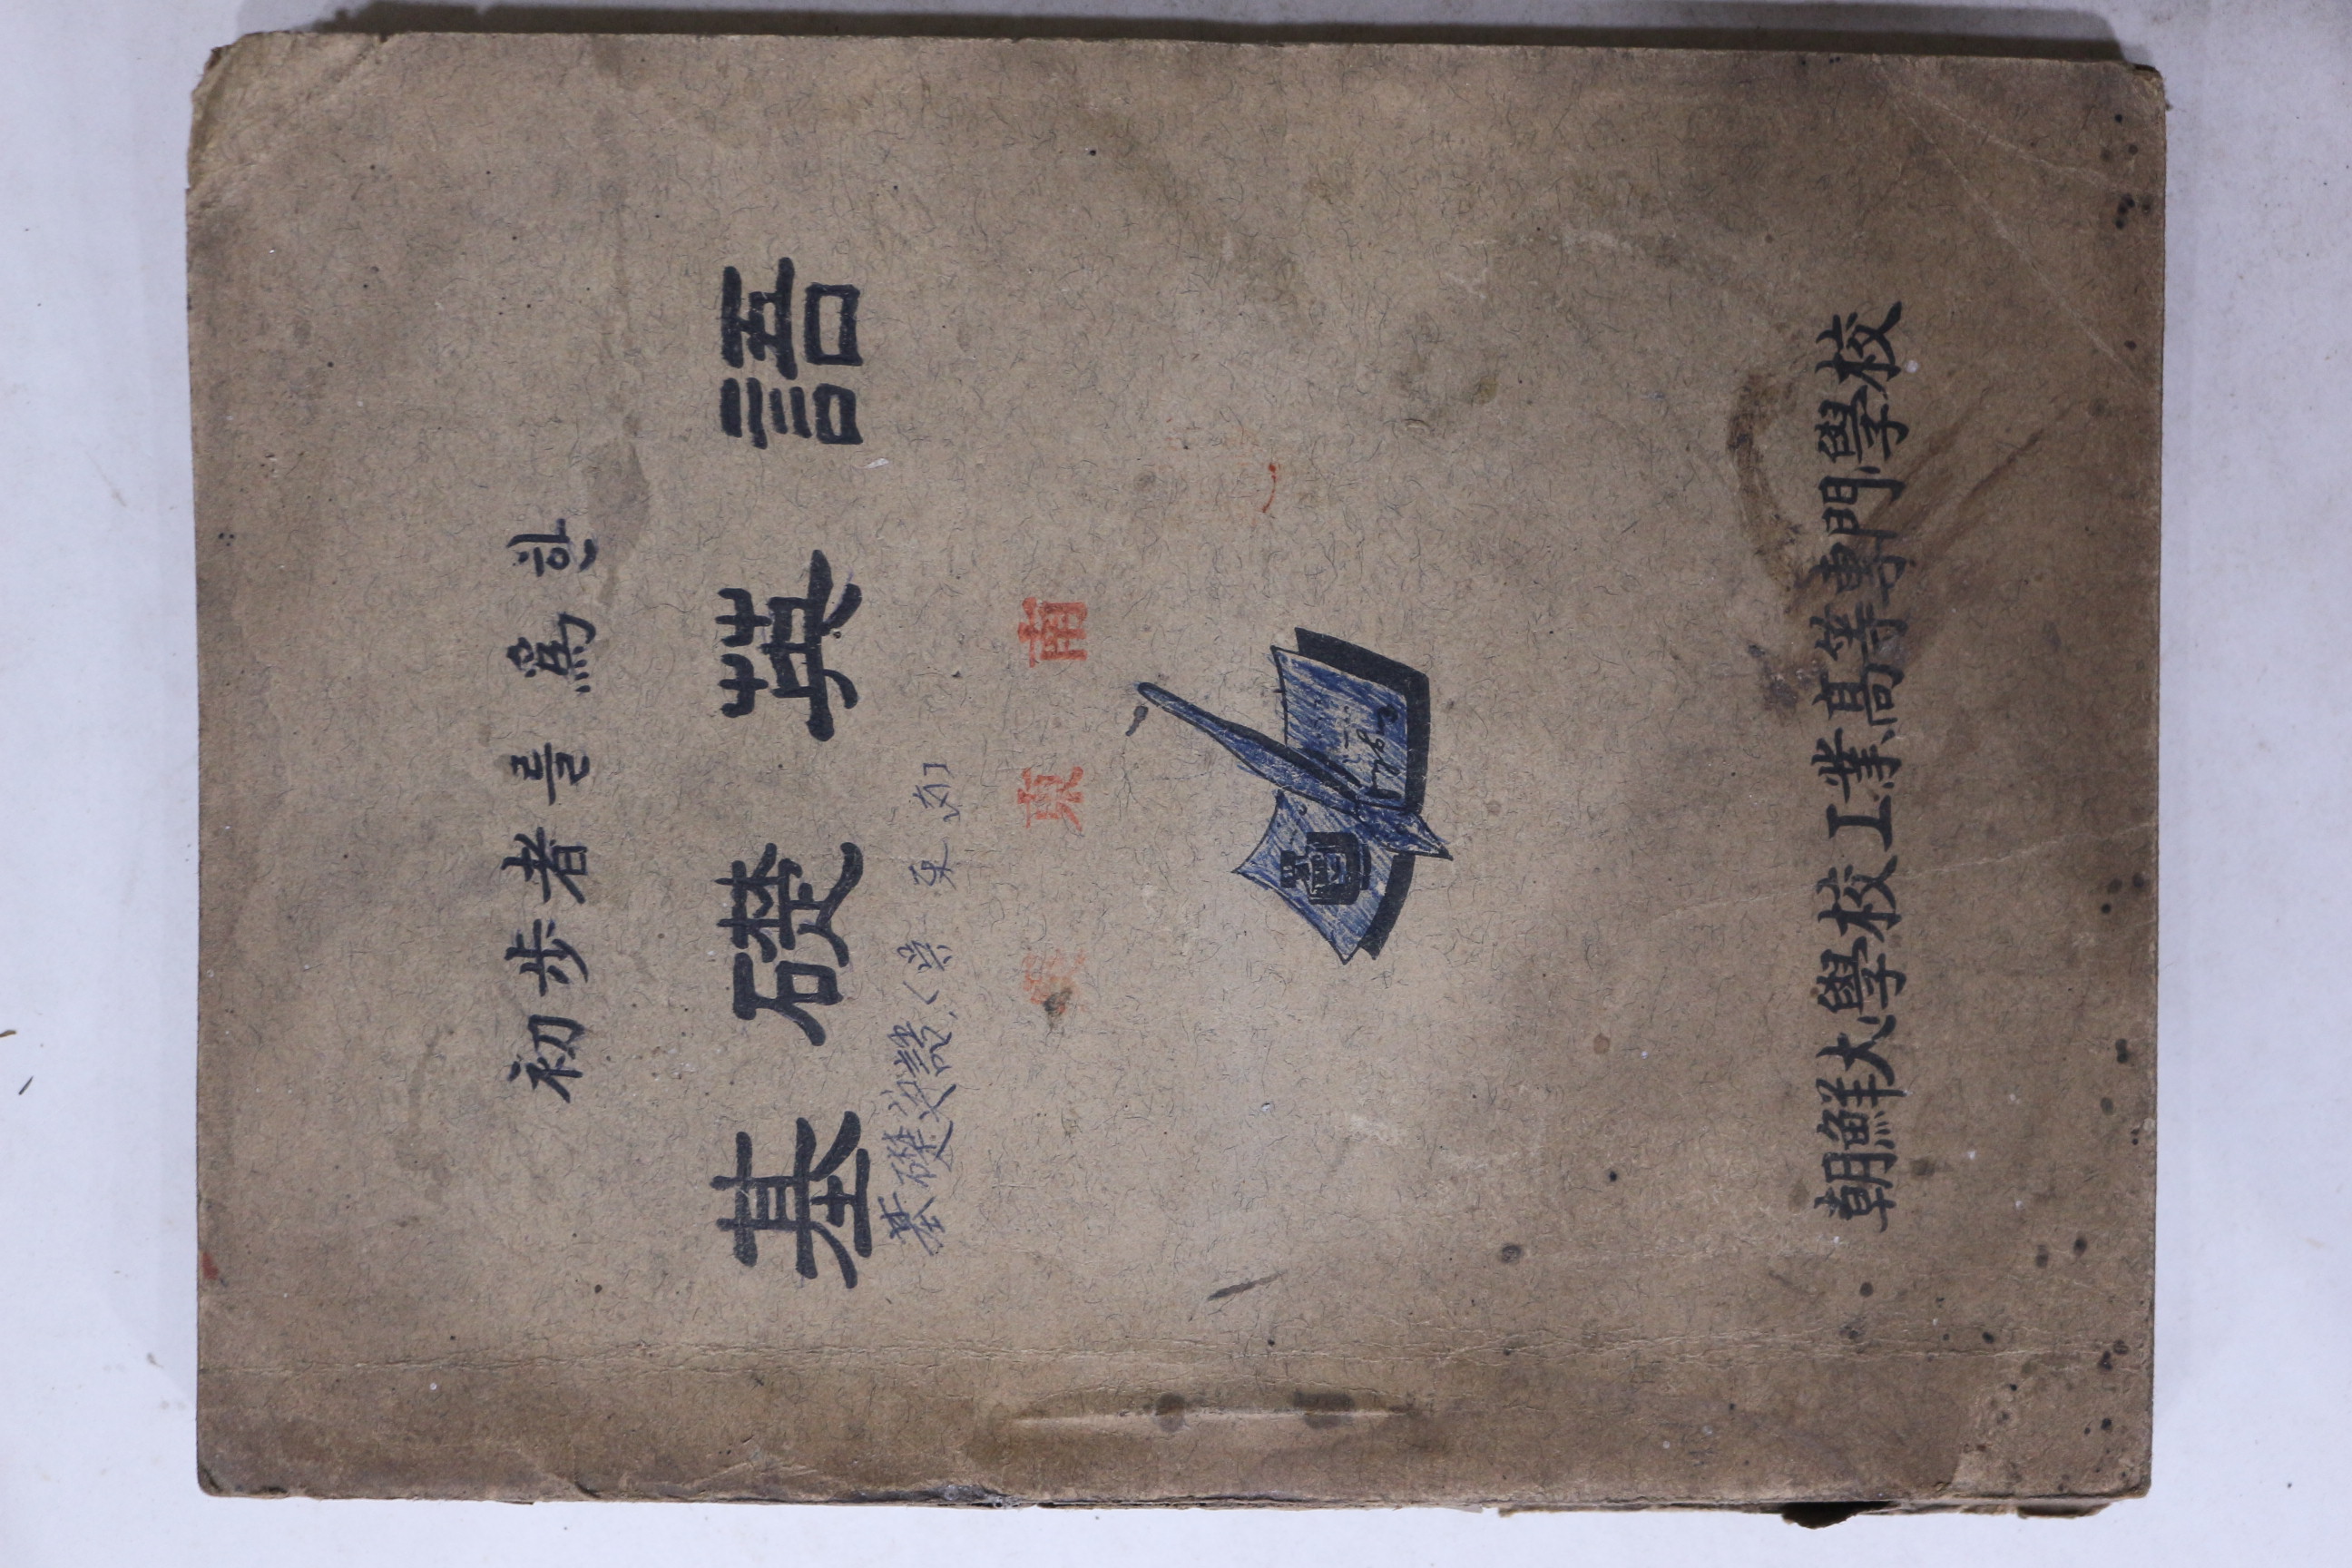 初步者를爲한
基礎英語
基礎英語
東南
朝鮮大學校工業高等專門學校